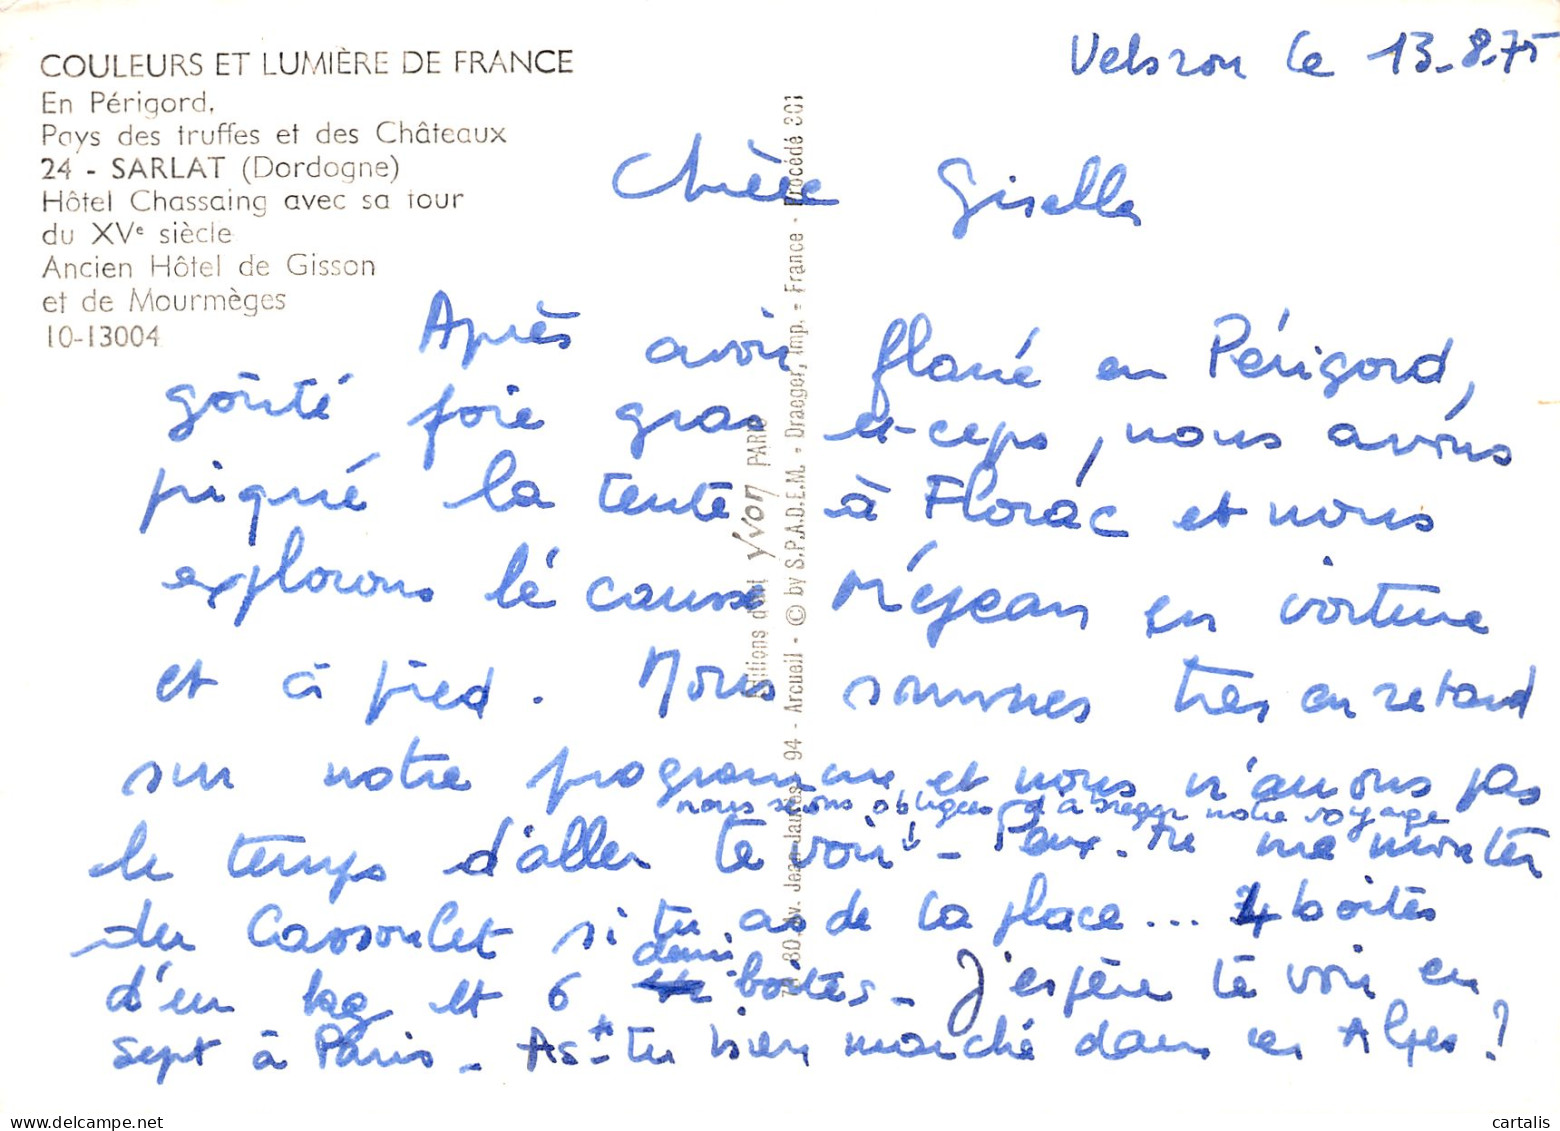 COULEURS ET LUMIÈRE DE FRANCE
En Périgord,
Pays des truffes et des Châteaux
24 - SARLAT (Dordogne)
Hôtel Chassaing avec sa tour
du XVe siècle
Ancien Hôtel de Gisson
et de Mourmèges
10-13004
le 13-8-75
Chère Giselle
Après avoir flané en Périgord,
goûté foie gras et ceps, nous avons
piqué la tente à Florac et nous
explorons le causse Méjean en voiture
et à pied. Nous sommes très en retard
sur notre programme et nous n'aurons pas
nous serions obligées d'abréger notre voyage
le temps d'aller te voir - Peux-tu me monter
du Cassoulet si tu as de la place... 4 boites
d'un kg et 6 demi boites - J'espère te voir en
sept à Paris - As-tu bien marché dans les Alpes ?
Editions d'art YVON PARIS
Av. Jean-Jaurès, 94 - Arcueil - © by S.P.A.D.E.M. - Draeger, Imp. - France - Procédé 301
cartalis